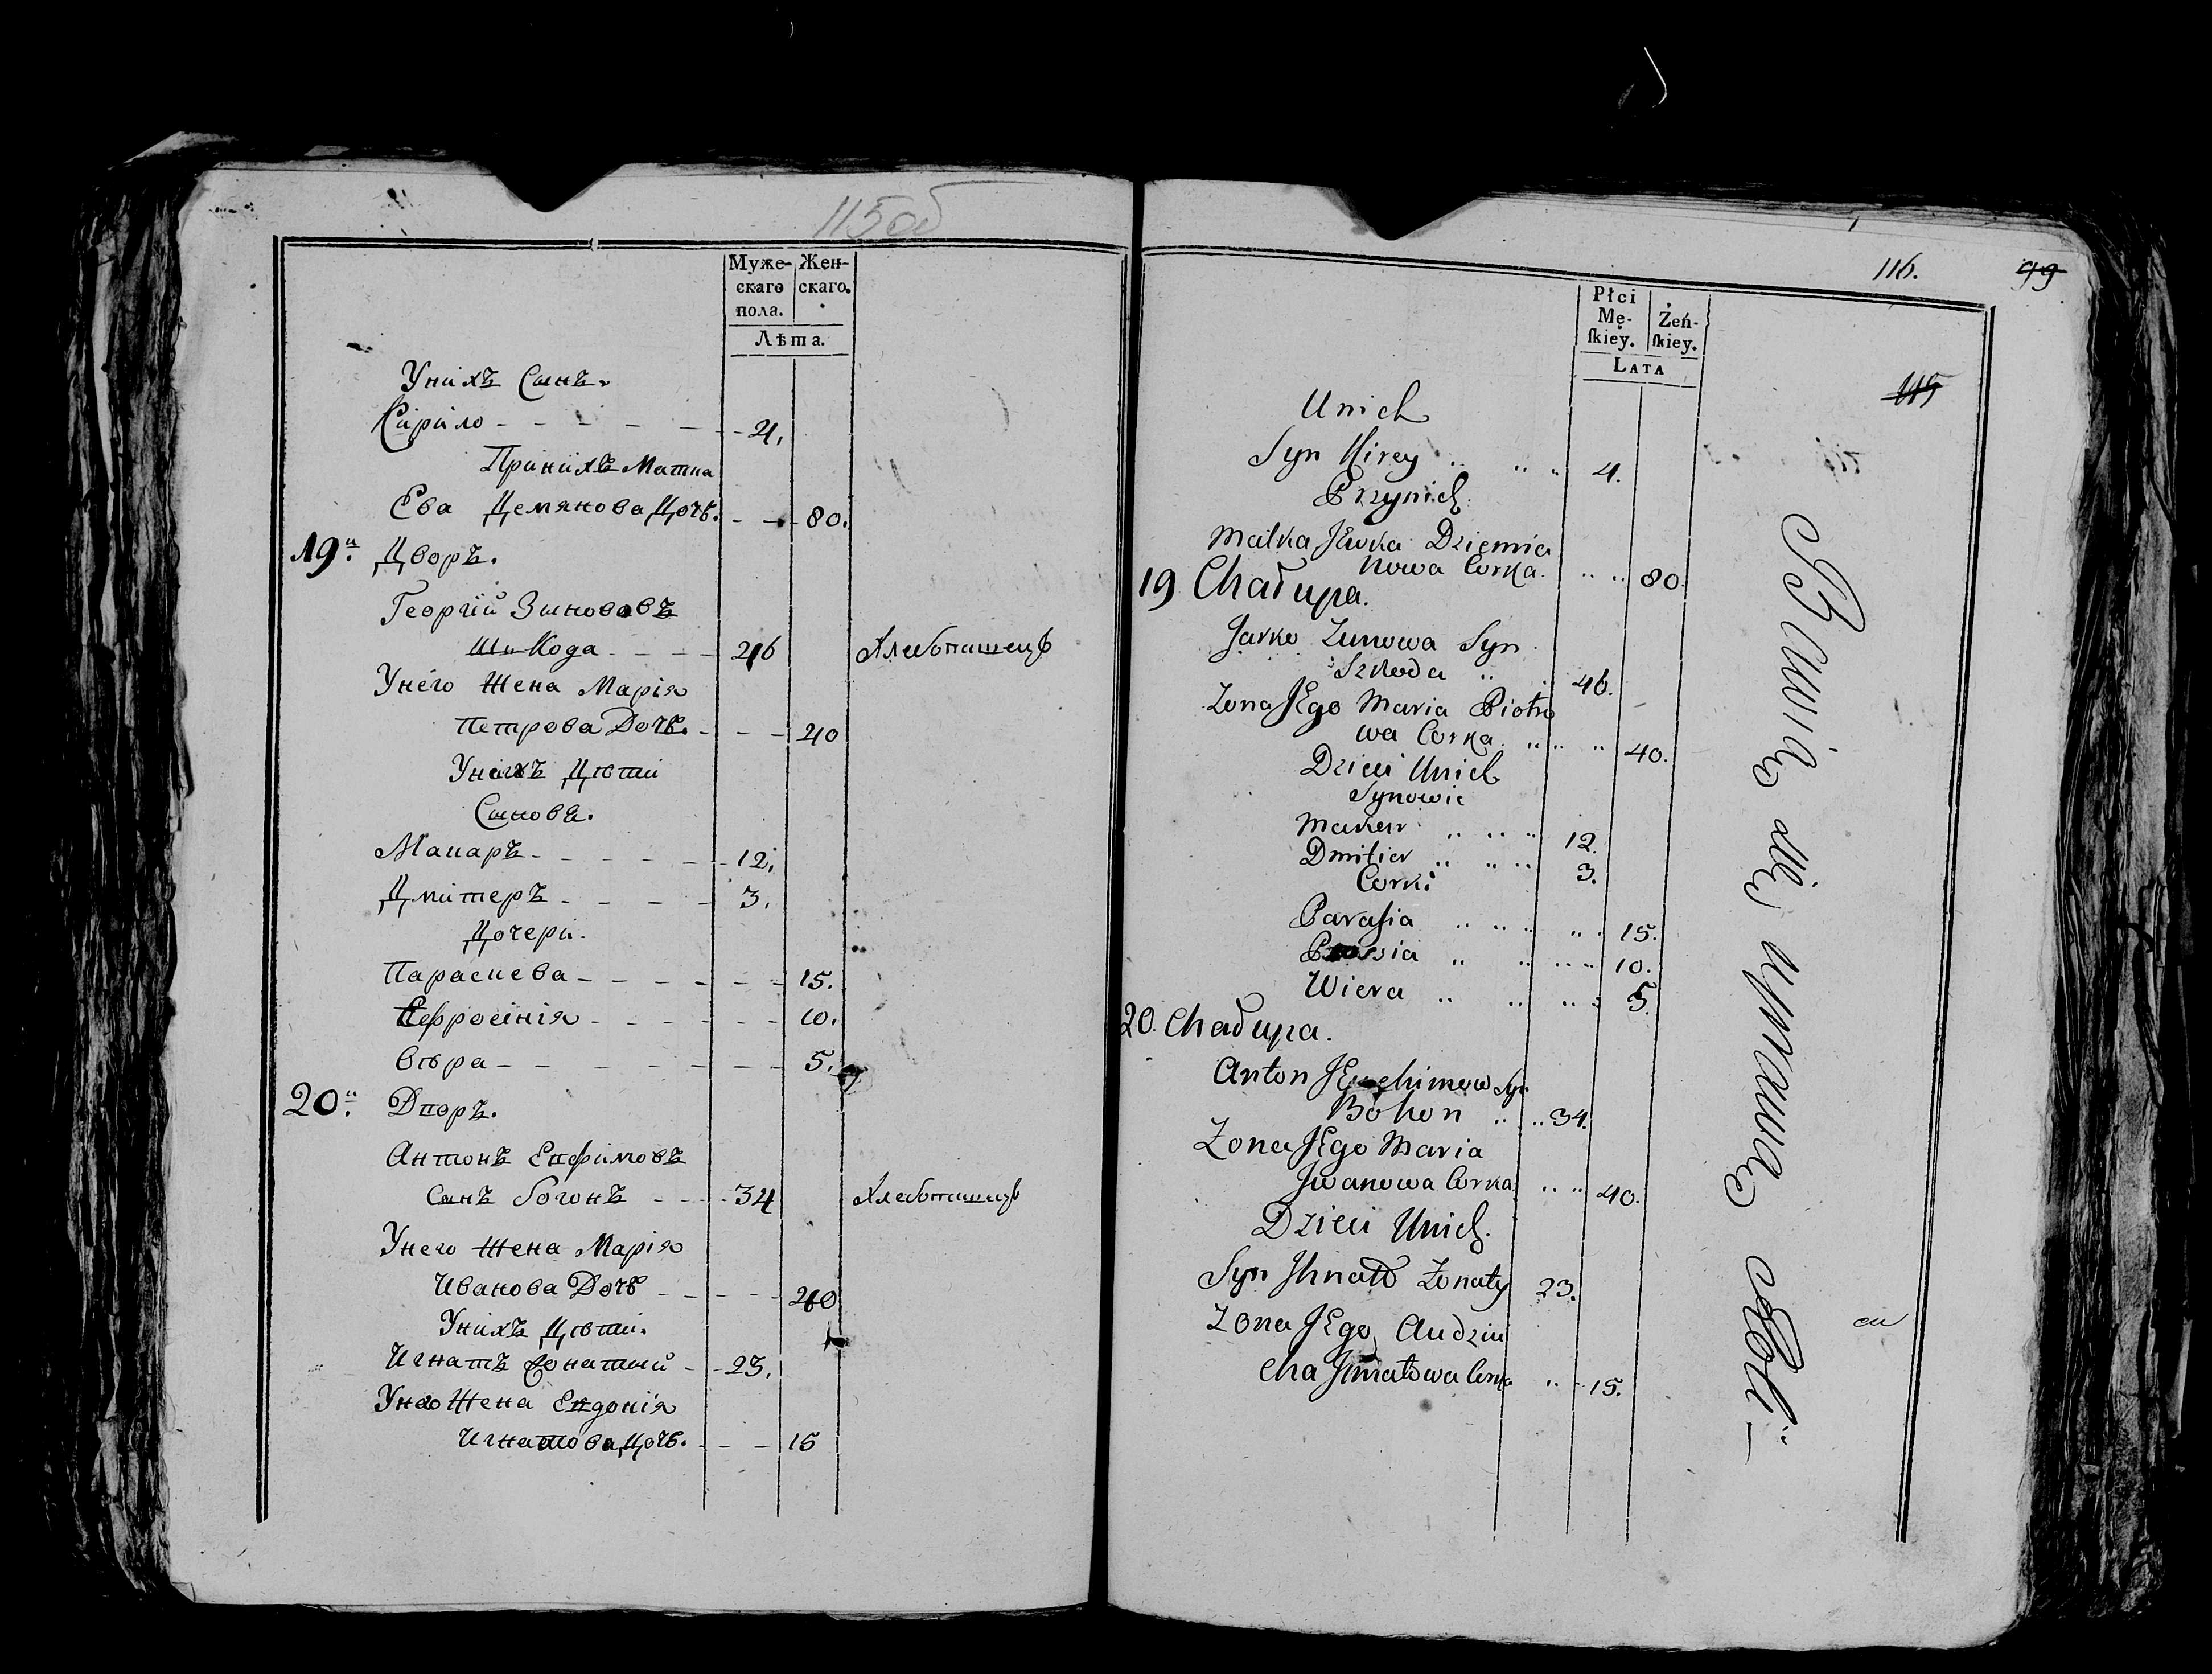 115об
Муже-
скаго
пола.
Жен-
скаго.
Лѣта.
Унихъ Сынъ.
Кирило - - - - - 4.
Принихъ Матка
Ева Демянова Дочь. - - 80.
19й. Дворъ.
Георгій Зынововъ
Шкода - - - - 46 Хлебопашецъ
Унего Жена Марія
Петрова Дочь. - - - 40
Унихъ Дѣти
Сыновѣ.
Макаръ - - - - - 12.
Дмитеръ - - - - 3.
Дочери.
Параскева - - - - - - 15.
Еефросинія - - - - - - 10.
Вѣра - - - - - - - 5.
20й. Дворъ.
Антонъ Евфимовъ
Сынъ Богонъ - - - 34 Хлебопашецъ
Унего Жена Марія
Иванова Дочь - - - - 40
Унихъ Дѣти.
Игнатъ Жонатый - - 23.
Унего Жена Евдокія
Игнатова Дочь. - - - 15
116.
99
115
Płci
Mę-
skiey.
Żeń-
skiey.
LATA
Unich
Syn Kirey .. .. .. 4.
Przynich
Matka JEwka Dziemia
nowa Corka. .. .. 80.
19 Chałupa.
Jarko Zunowa Syn
Szkoda .. .. 46.
Zona JEgo Maria Piotro
wa Corka .. .. .. 40.
Dzieci Unich
Synowie
Makar .. .. .. 12.
Dmiter .. .. .. 3.
Corki
Parasia .. .. .. .. 15.
.. .. .. .. 10.
Wiera .. .. .. .. 5.
20. Chałupa.
Anton JEuchimow Syn
Bohon .. .. 34.
Zona JEgo Maria
Jwanowa Corka .. .. 40.
Dzieci Unich.
Syn Jhnatt Zonaty 23.
Zona JEgo Audziu
cha Jhnatowa Corka .. .. 15.